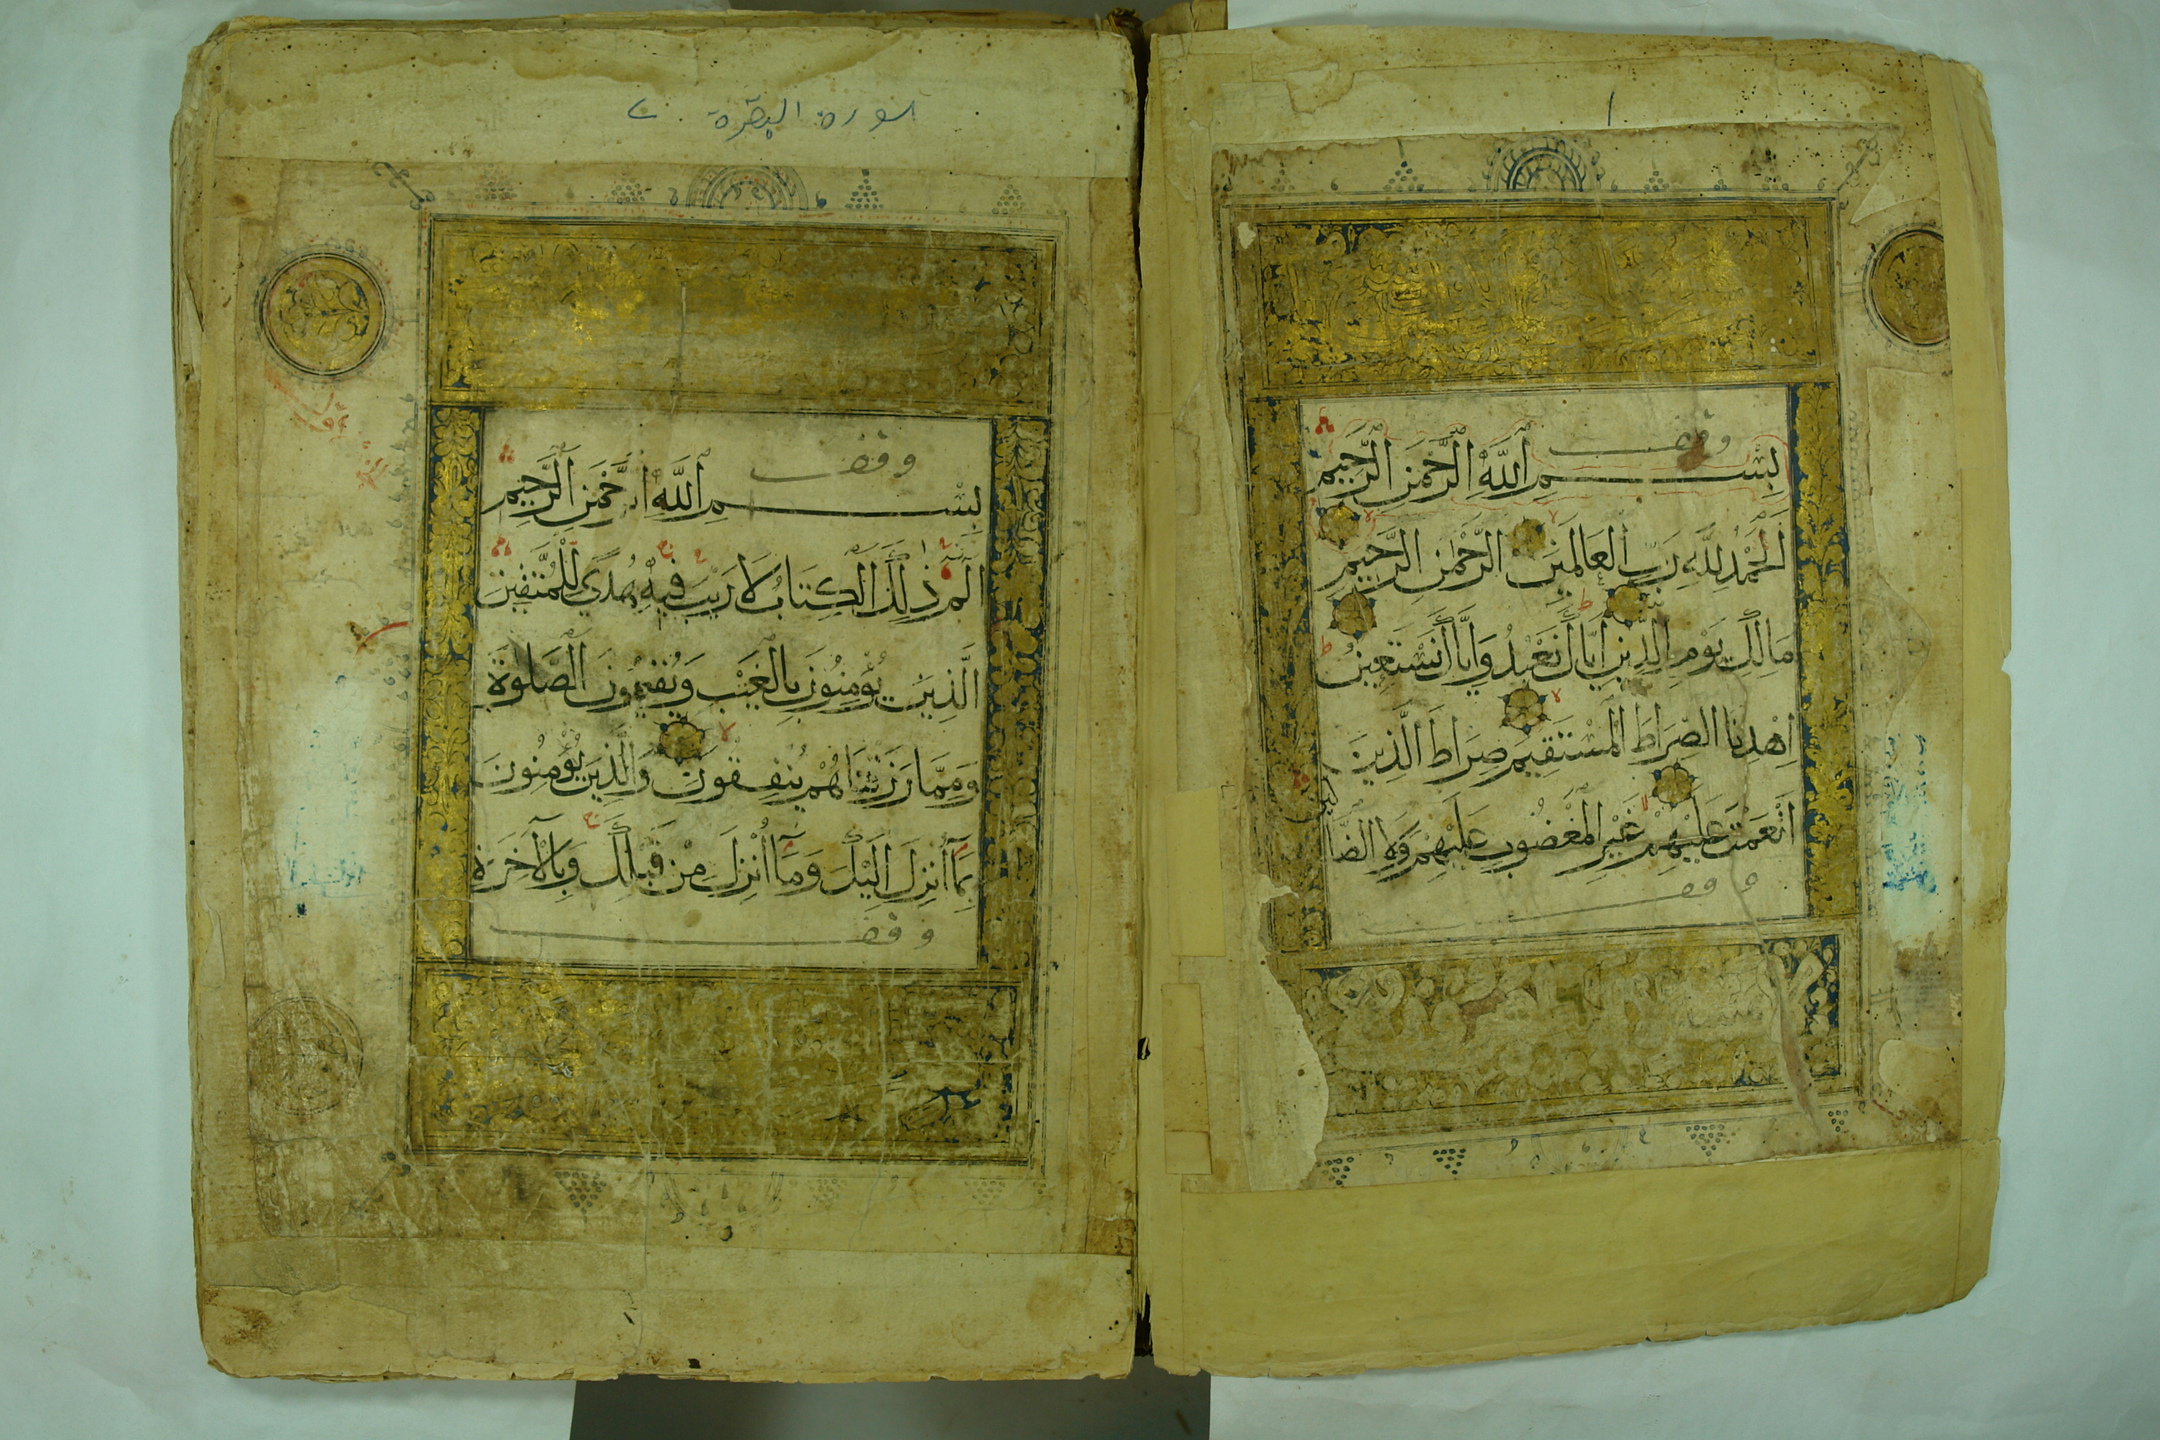 ١
وقف
بِسْمِ اللَّهِ الرَّحْمَنِ الرَّحِيمِ
اَلْحَمْدُ لِلَّهِ رَبِّ الْعَالَمِينَ الرَّحْمَنِ الرَّحِيمِ
مَالِكِ يَوْمِ الدِّينِ إِيَّاكَ نَعْبُدُ وَإِيَّاكَ نَسْتَعِينُ
اِهْدِنَا الصِّرَاطَ الْمُسْتَقِيمَ صِرَاطَ الَّذِينَ
أَنْعَمْتَ عَلَيْهِمْ غَيْرِ الْمَغْضُوبِ عَلَيْهِمْ وَلَا الضَّالِّينَ
وقف
سورة البقرة ٢
وقف
بِسْمِ اللَّهِ الرَّحْمَنِ الرَّحِيمِ
الٓمٓ ذَلِكَ الْكِتَابُ لَا رَيْبَ فِيهِ هُدًى لِلْمُتَّقِينَ
الَّذِينَ يُؤْمِنُونَ بِالْغَيْبِ وَيُقِيمُونَ الصَّلَوةَ
وَمِمَّا رَزَقْنَاهُمْ يُنْفِقُونَ وَالَّذِينَ يُؤْمِنُونَ
بِمَآ أُنْزِلَ إِلَيْكَ وَمَآ أُنْزِلَ مِنْ قَبْلِكَ وَبِالْآخِرَةِ
وقف